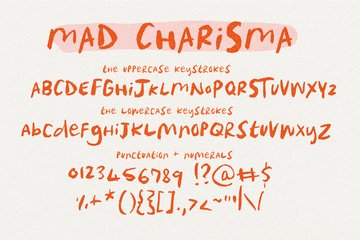 MAD CHARiSMA
the UPPERCASE KEYSTROKES
ABCDEFGHiJKLMNOPQRSTUVWXYZ
the LOWERCASE KEYSTROKES
AbcdefghiJKLMNOPQRStUVWXYZ
PUNCTUATION + NUMERALS
0123456789 !?@#$
%+*(){}[].,><~"''|\/